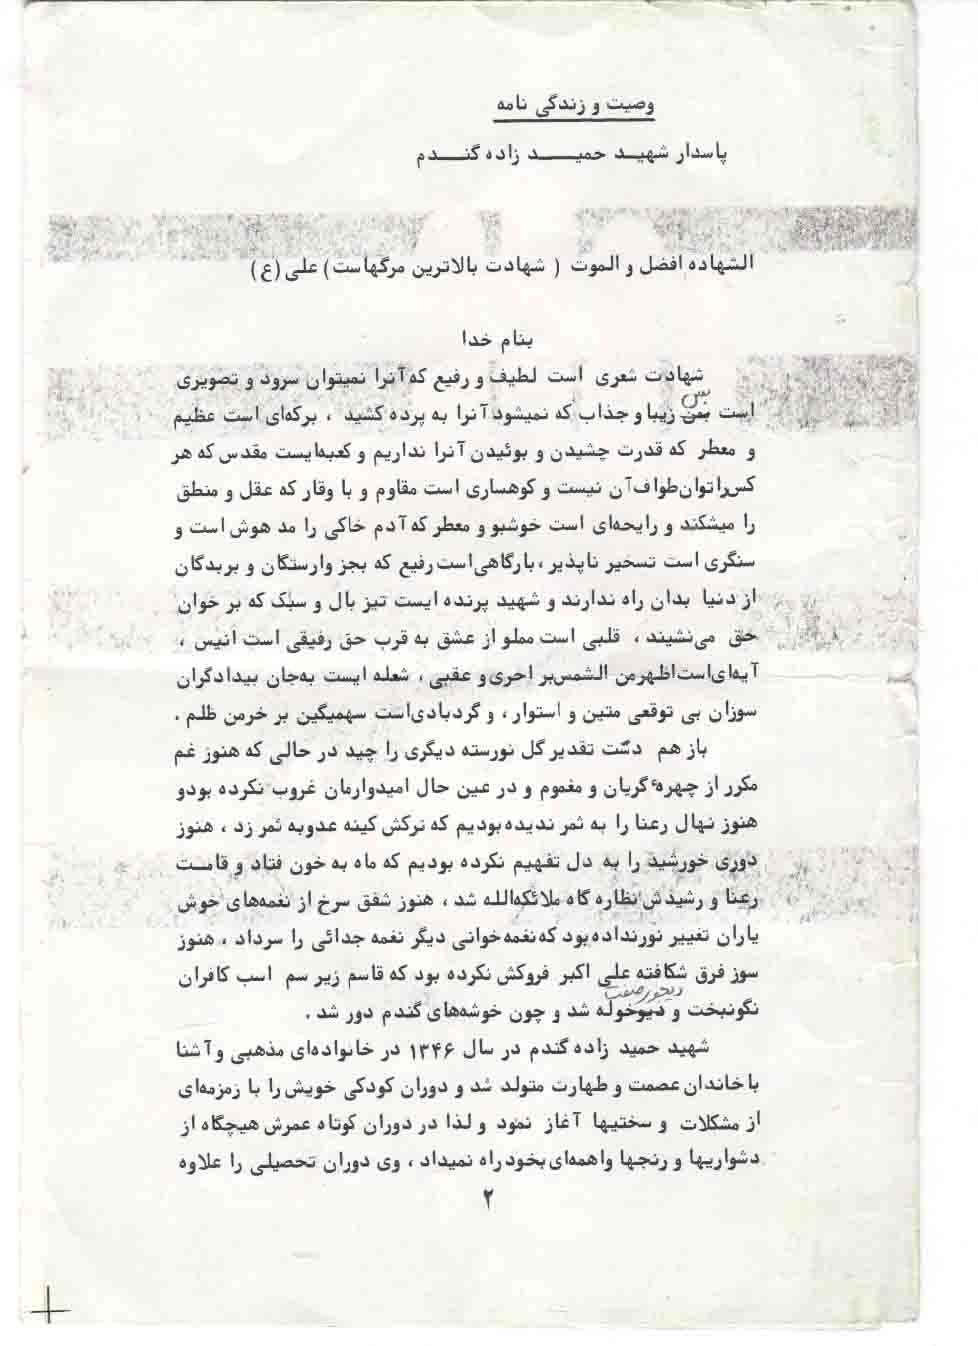 وصیت و زندگی نامه
پاسدار شهید حمید زاده گندم
الشهاده افضل و الموت ( شهادت بالاترین مرگهاست) علی (ع)
بنام خدا
شهادت شعری است لطیف و رفیع که آنرا نمیتوان سرود و تصویری
است بس زیبا و جذاب که نمیشود آنرا به پرده کشید ، برکه‌ای است عظیم
و معطر که قدرت چشیدن و بوئیدن آنرا نداریم و کعبه‌ایست مقدس که هر
کس‌را توان طواف آن نیست و کوهساری است مقاوم و با وقار که عقل و منطق
را میشکند و رایحه‌ای است خوشبو و معطر که آدم خاکی را مد هوش است و
سنگری است تسخیر ناپذیر ، بارگاهی است رفیع که بجز وارستگان و بریدگان
از دنیا بدان راه ندارند و شهید پرنده ایست تیز بال و سبک که بر خوان
حق می‌نشیند ، قلبی است مملو از عشق به قرب حق رفیقی است انیس ،
آیه‌ای است اظهر من الشمس بر اخری و عقبی ، شعله ایست به‌جان بیدادگران
سوزان بی توقعی متین و استوار ، و گردبادی‌است سهمیگین بر خرمن ظلم .
باز هم دست تقدیر گل نورسته دیگری را چید در حالی که هنوز غم
مکرر از چهرهٔ گریان و مغموم و در عین حال امیدوارمان غروب نکرده بودو
هنوز نهال رعنا را به ثمر ندیده بودیم که ترکش کینه عدوبه ثمر زد ، هنوز
دوری خورشید را به دل تفهیم نکرده بودیم که ماه به خون فتاد و قامت
رعنا و رشیدش نظاره گاه ملائکه‌الله شد ، هنوز شفق سرخ از نغمه‌های خوش
یاران تغییر نورنداده بود که نغمه‌خوانی دیگر نغمه جدائی را سرداد ، هنوز
سوز فرق شکافته علی اکبر فروکش نکرده بود که قاسم زیر سم اسب کافران
نگونبخت و دیو شد و چون خوشه‌های گندم دور شد .
شهید حمید زاده گندم در سال ۱۳۴۶ در خانواده‌ای مذهبی و آشنا
با خاندان عصمت و طهارت متولد شد و دوران کودکی خویش را با زمزمه‌ای
از مشکلات و سختیها آغاز نمود و لذا در دوران کوتاه عمرش هیچگاه از
دشواریها و رنجها واهمه‌ای بخود راه نمیداد ، وی دوران تحصیلی را علاوه
۲